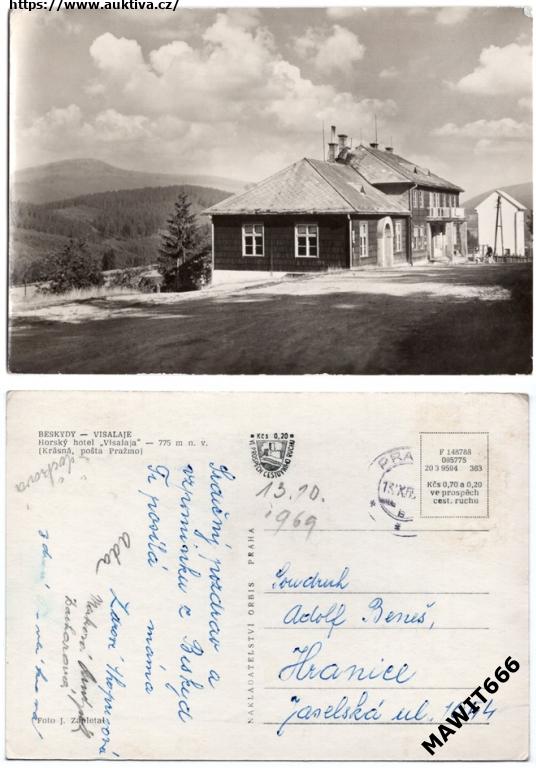 https://www.auktiva.cz/
BESKYDY — VISALAJE
Horský hotel „Visalaja" — 775 m n. v.
(Krásná, pošta Pražmo)
Kčs 0,20
VE PROSPĚCH CESTOVNÍHO RUCHU
13.10.
1969
PRA
F 148788
085775
20 3 9594 363
Kčs 0,70 a 0,20
ve prospěch
cest. ruchu
Srdečný pozdrav a
vzpomínku z Beskyd
Ti posílá
máma
Ada
NAKLADATELSTVÍ ORBIS PRAHA
Soudruh
Adolf Beneš,
Hranice
Jaselská ul.
Foto J. Zápletal
MAWIT666